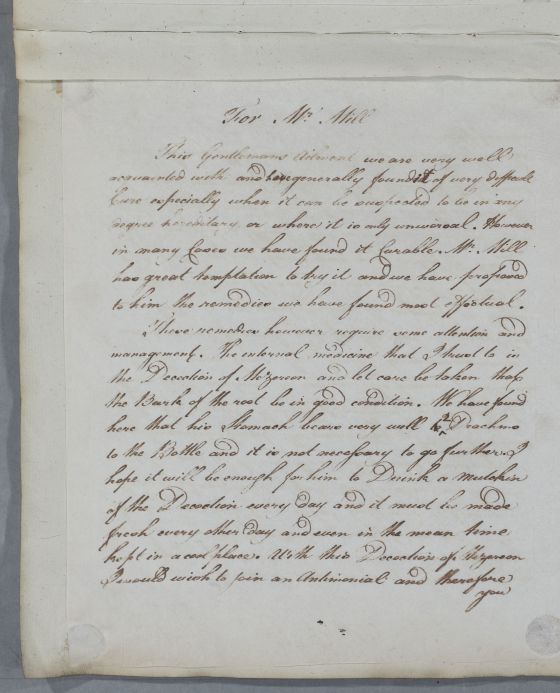 For Mr. Mill
This Gentlemans Ailment we are very well
acquainted with and have generally found it of very difficult
Cure especially when it can be suspected to be in any
degree hereditary or where it is only universal. However
in many Cases we have found it Curable Mr. Mill
has great temptation to try it and we have proposed
to him the remedies we have found most effectual.
These remedies however require some attention and
management. The internal medicine that I trust to is
the Decoction of Mezereon and let care be taken that
the Bark of the root be in good condition. We have found
here that his Stomach bears very well to 2 Drachms
to the Bottle and it is not necessary to go further. I
hope it will be enough for him to Drink a mutchkin
of the Decoction every day and it must be made
fresh every other day and even in the mean time
kept in a cool place. With this Decoction of Mezereon
I would wish to join an Antimonial and therefore
you